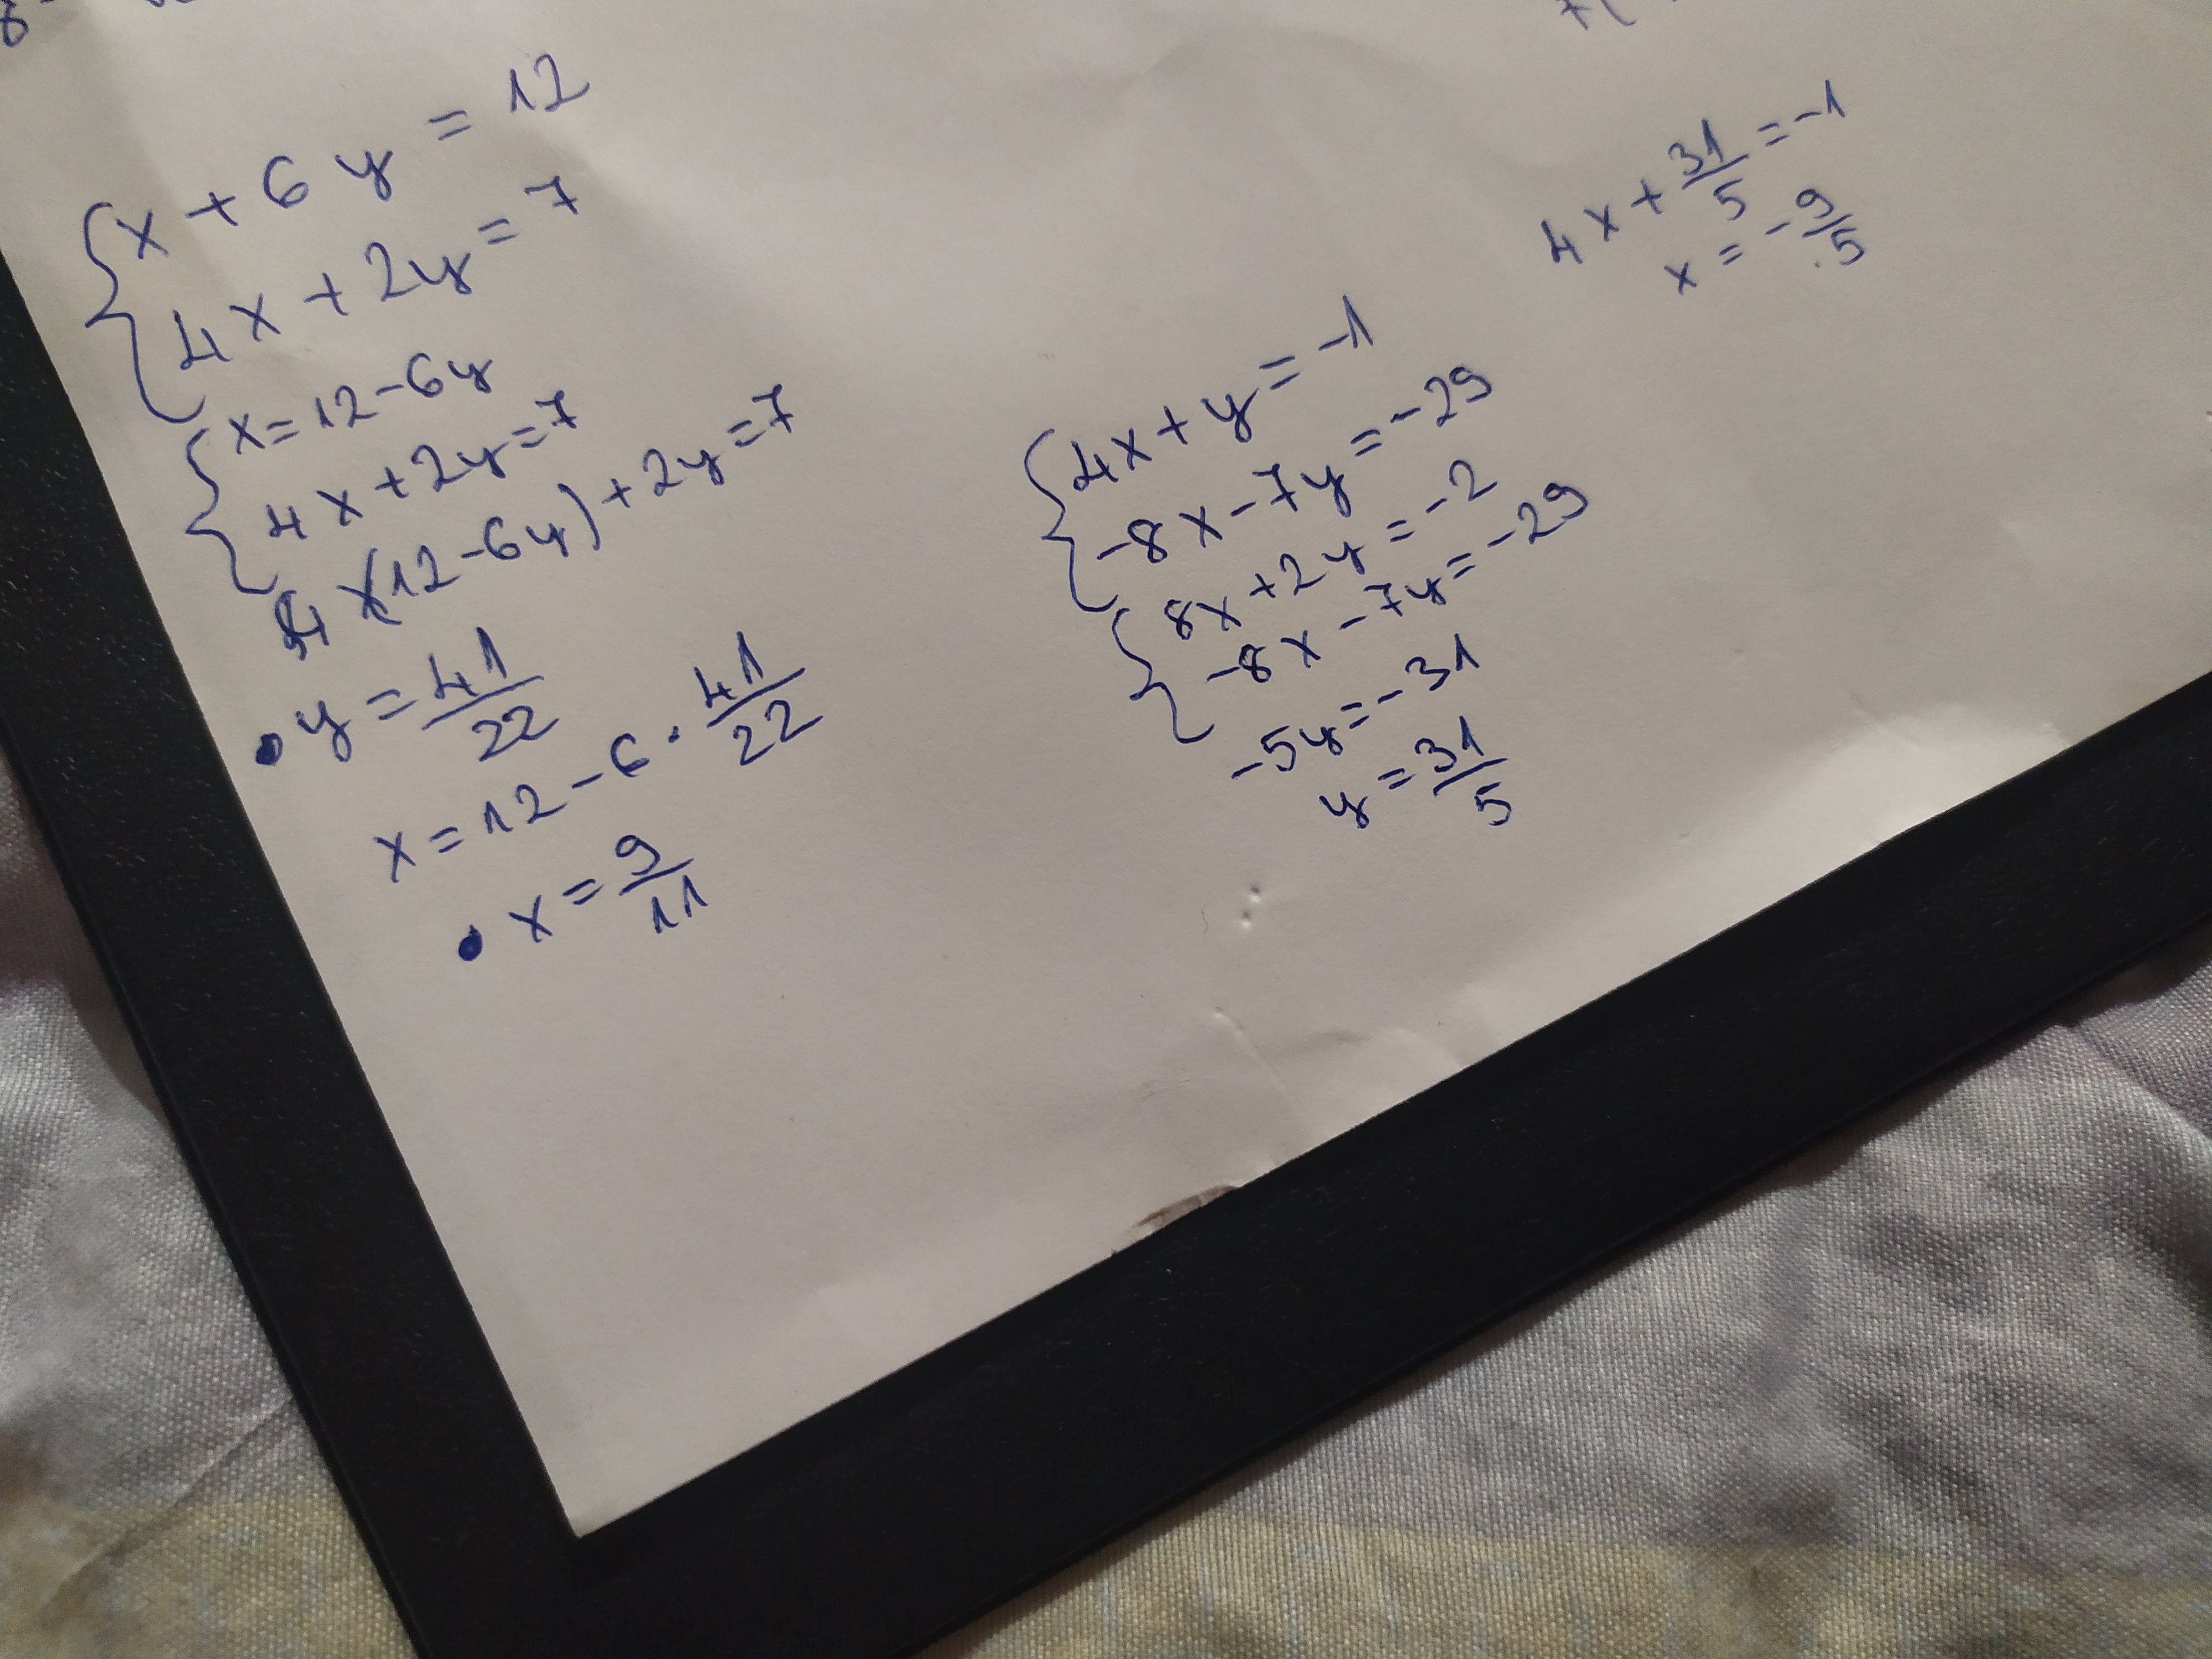 x + 6y = 12
4x + 2y = 7
x = 12 - 6y
4x + 2y = 7
4(12 - 6y) + 2y = 7
• y = 41/22
x = 12 - 6 · 41/22
• x = 9/11
4x + y = -1
-8x - 7y = -29
8x + 2y = -2
-8x - 7y = -29
-5y = -31
y = 31/5
4x + 31/5 = -1
x = -9/5